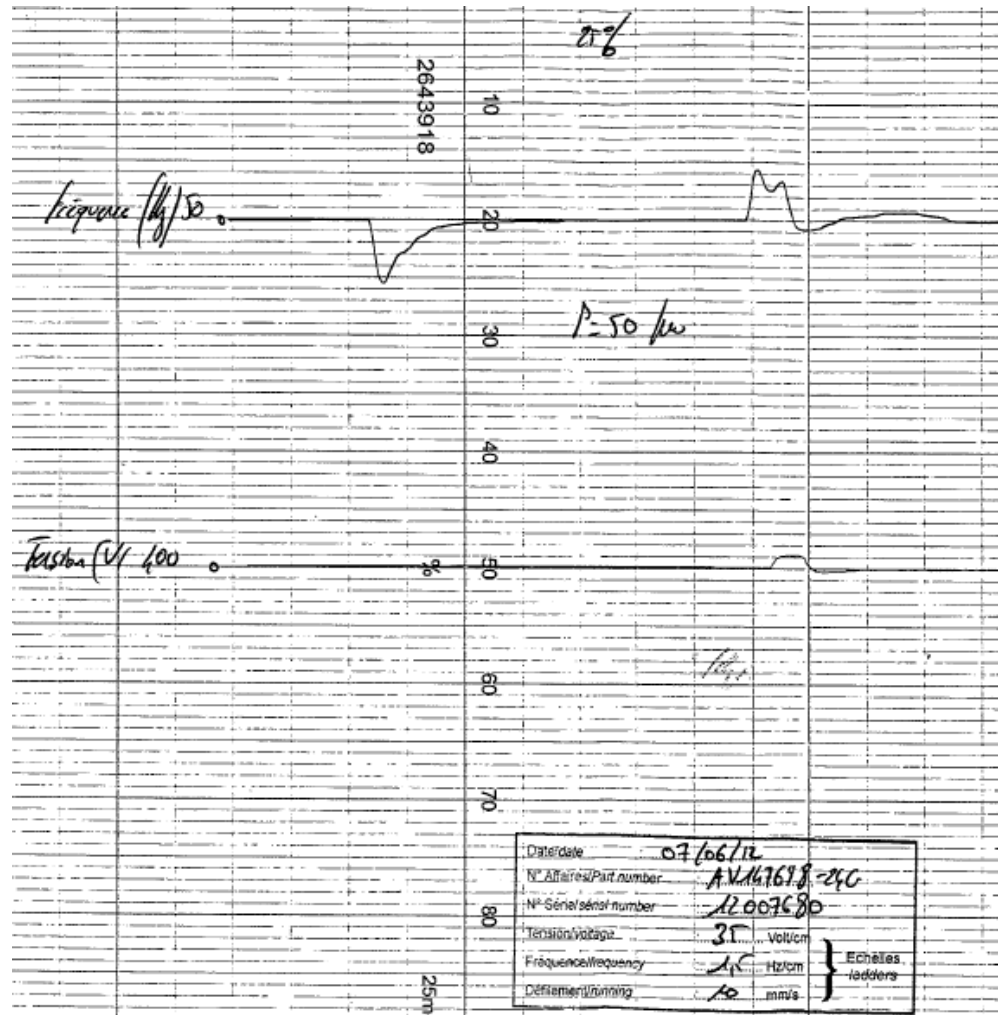 25%
2643918
10
Fréquence (Hz) 50
20
P=50 kw
30
40
Tension (V) 400
%
50
60
70
80
25m
Date/date 07/06/12
N° Affaires/Part number AV147698-24C
N° Série/sérial number 12007680
Tension/voltage 35 Volt/cm
Fréquence/frequency 1,5 Hz/cm
Défilement/running 10 mm/s
Echelles
ladders